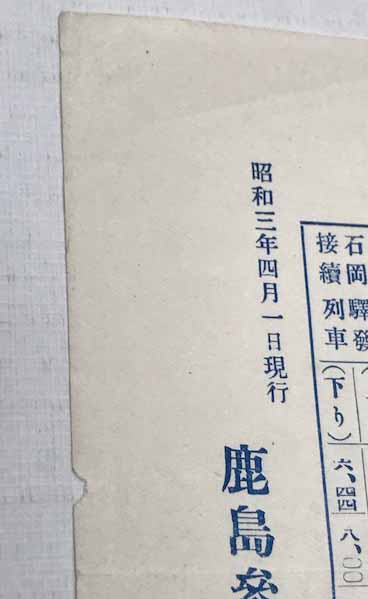 石岡驛發
接續列車
(下り)
六、四四
八、〇〇
昭和三年四月一日現行
鹿島參